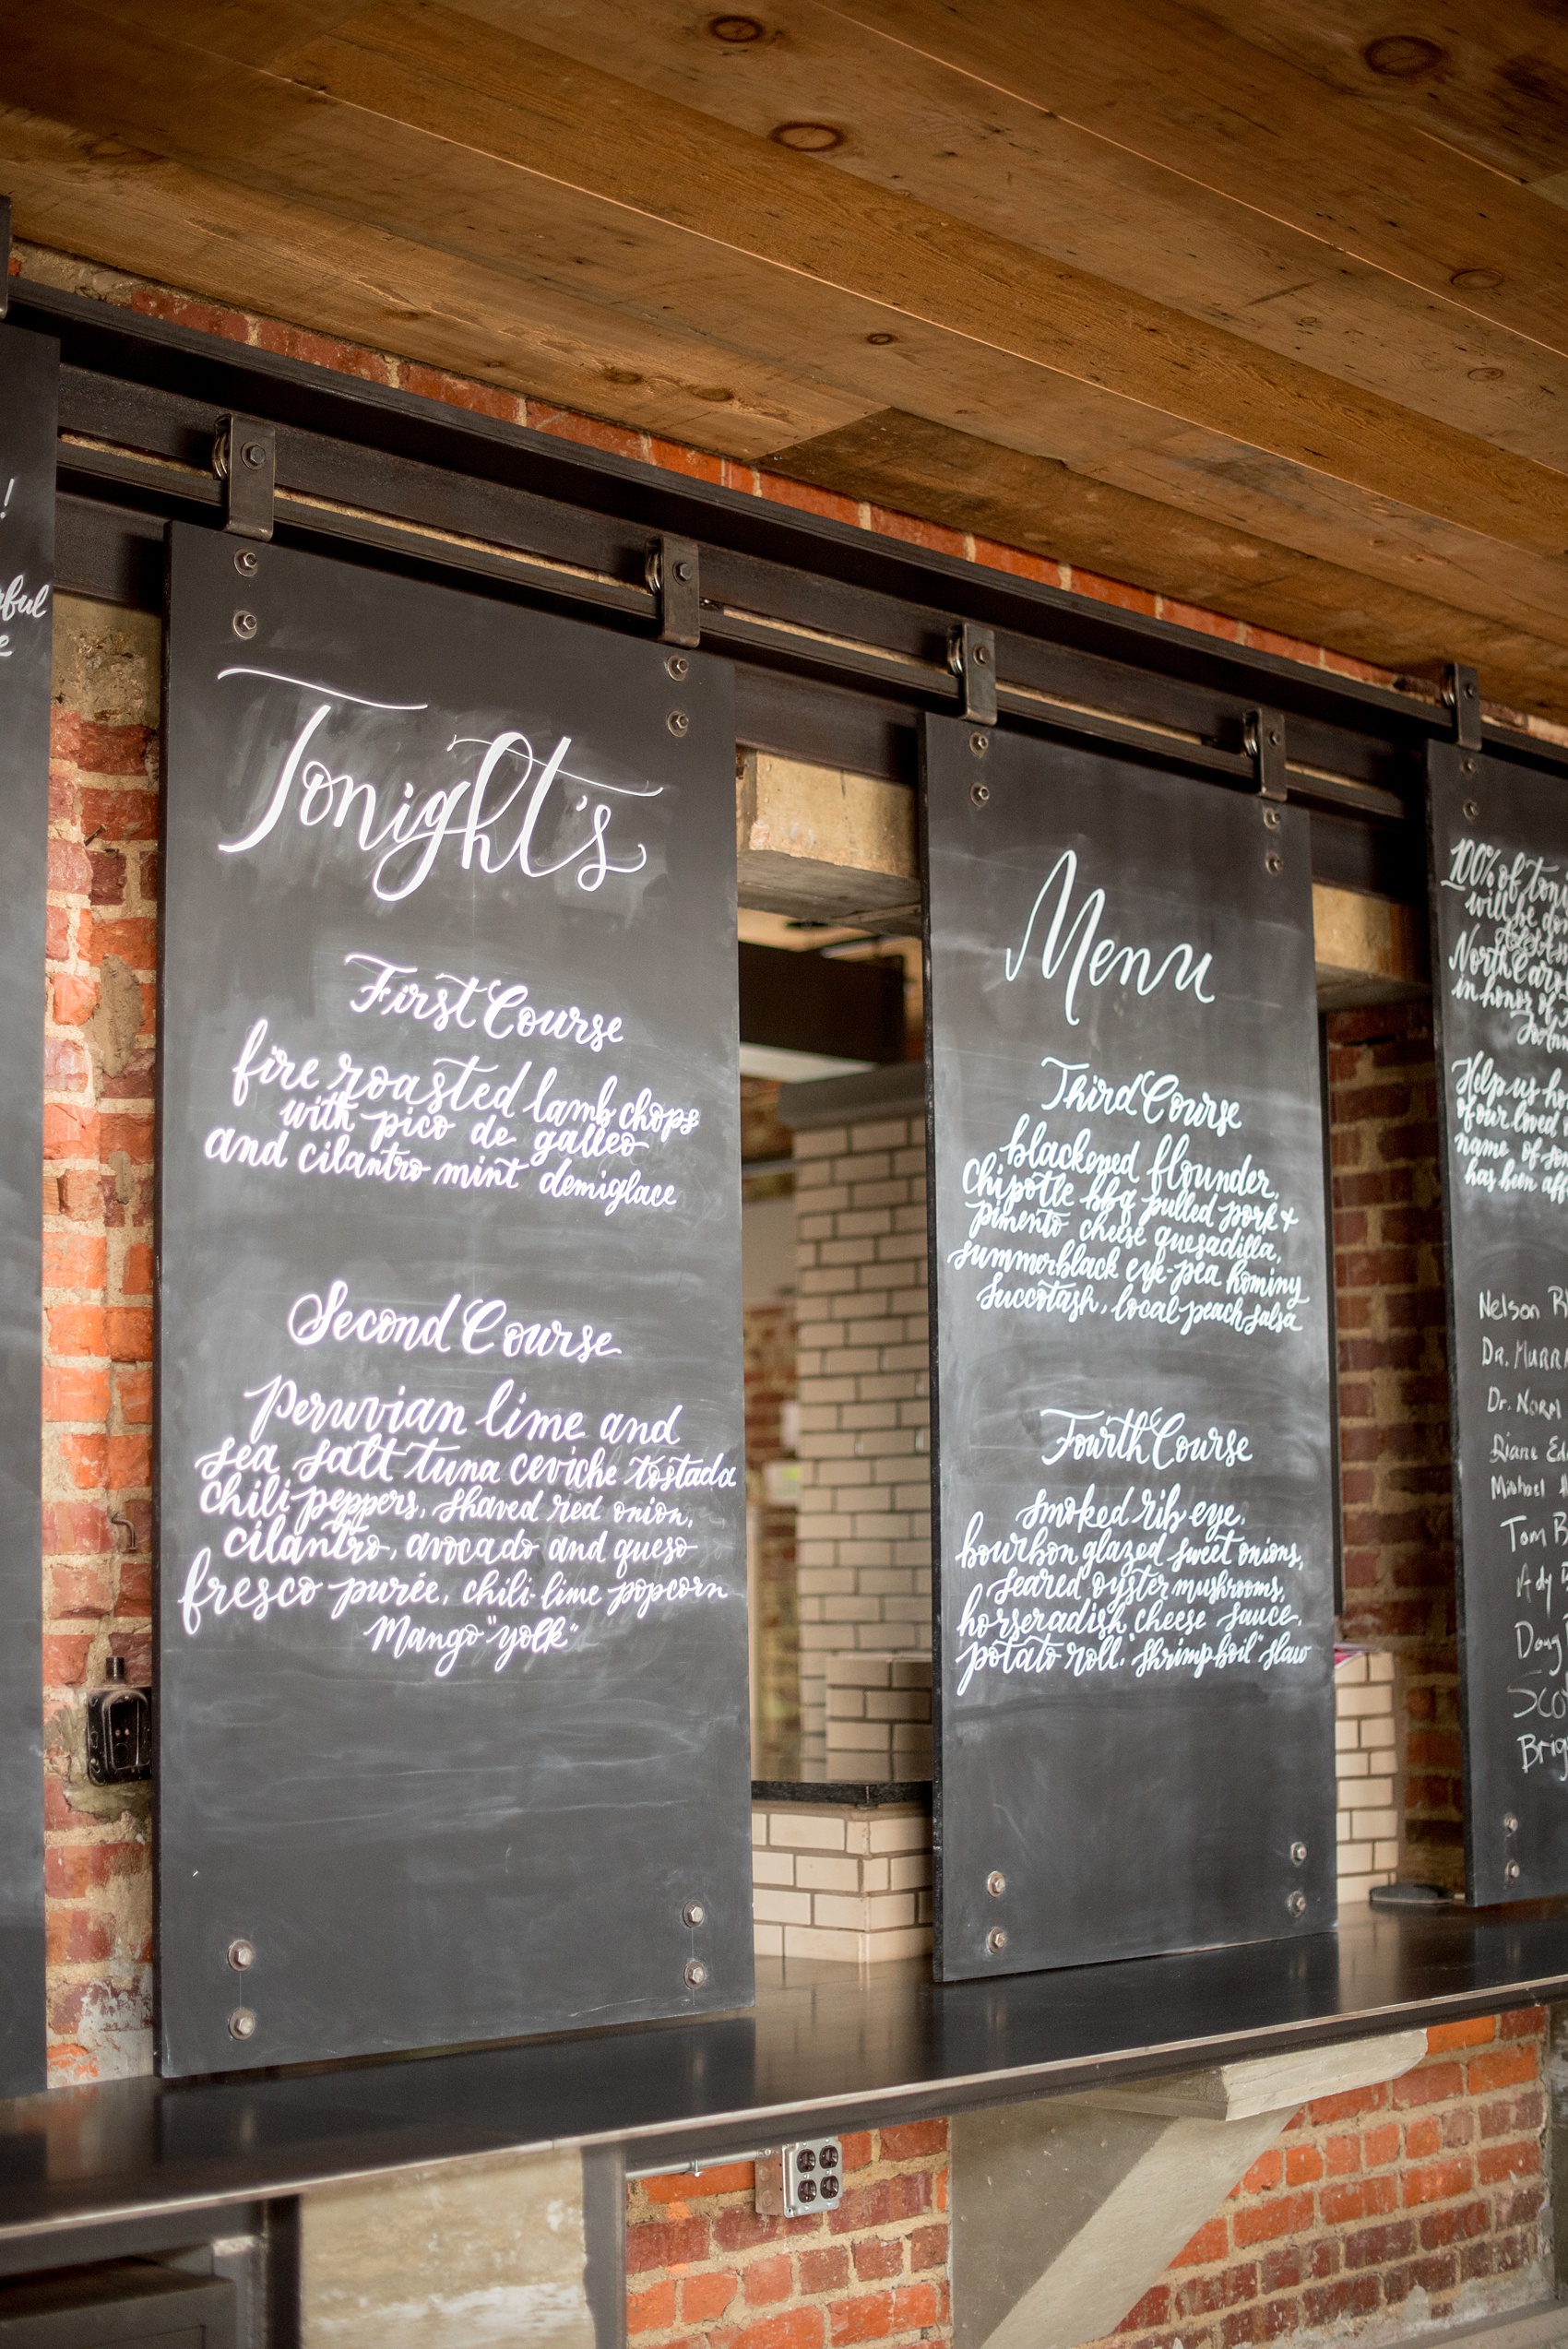 !
Tonight's
First Course
fire roasted lamb chops
with pico de galleo
and cilantro mint demiglace
Second Course
Peruvian lime and
sea salt tuna ceviche tostada
chili peppers, shaved red onion,
cilantro, avocado and queso
fresco purée, chili-lime popcorn
Mango "yolk"
Menu
Third Course
blackened flounder,
Chipotle bbq pulled pork +
pimento cheese quesadilla,
summer black eye-pea hominy
Succotash, local peach salsa
Fourth Course
smoked rib eye,
bourbon glazed sweet onions,
seared oyster mushrooms,
horseradish cheese sauce,
potato roll, "shrimp boil" slaw
100% of
will be
North
in honor of
Help us
of our loved
name of
has been
Nelson
Dr.
Dr.
Diane
Michael
Tom
Doug